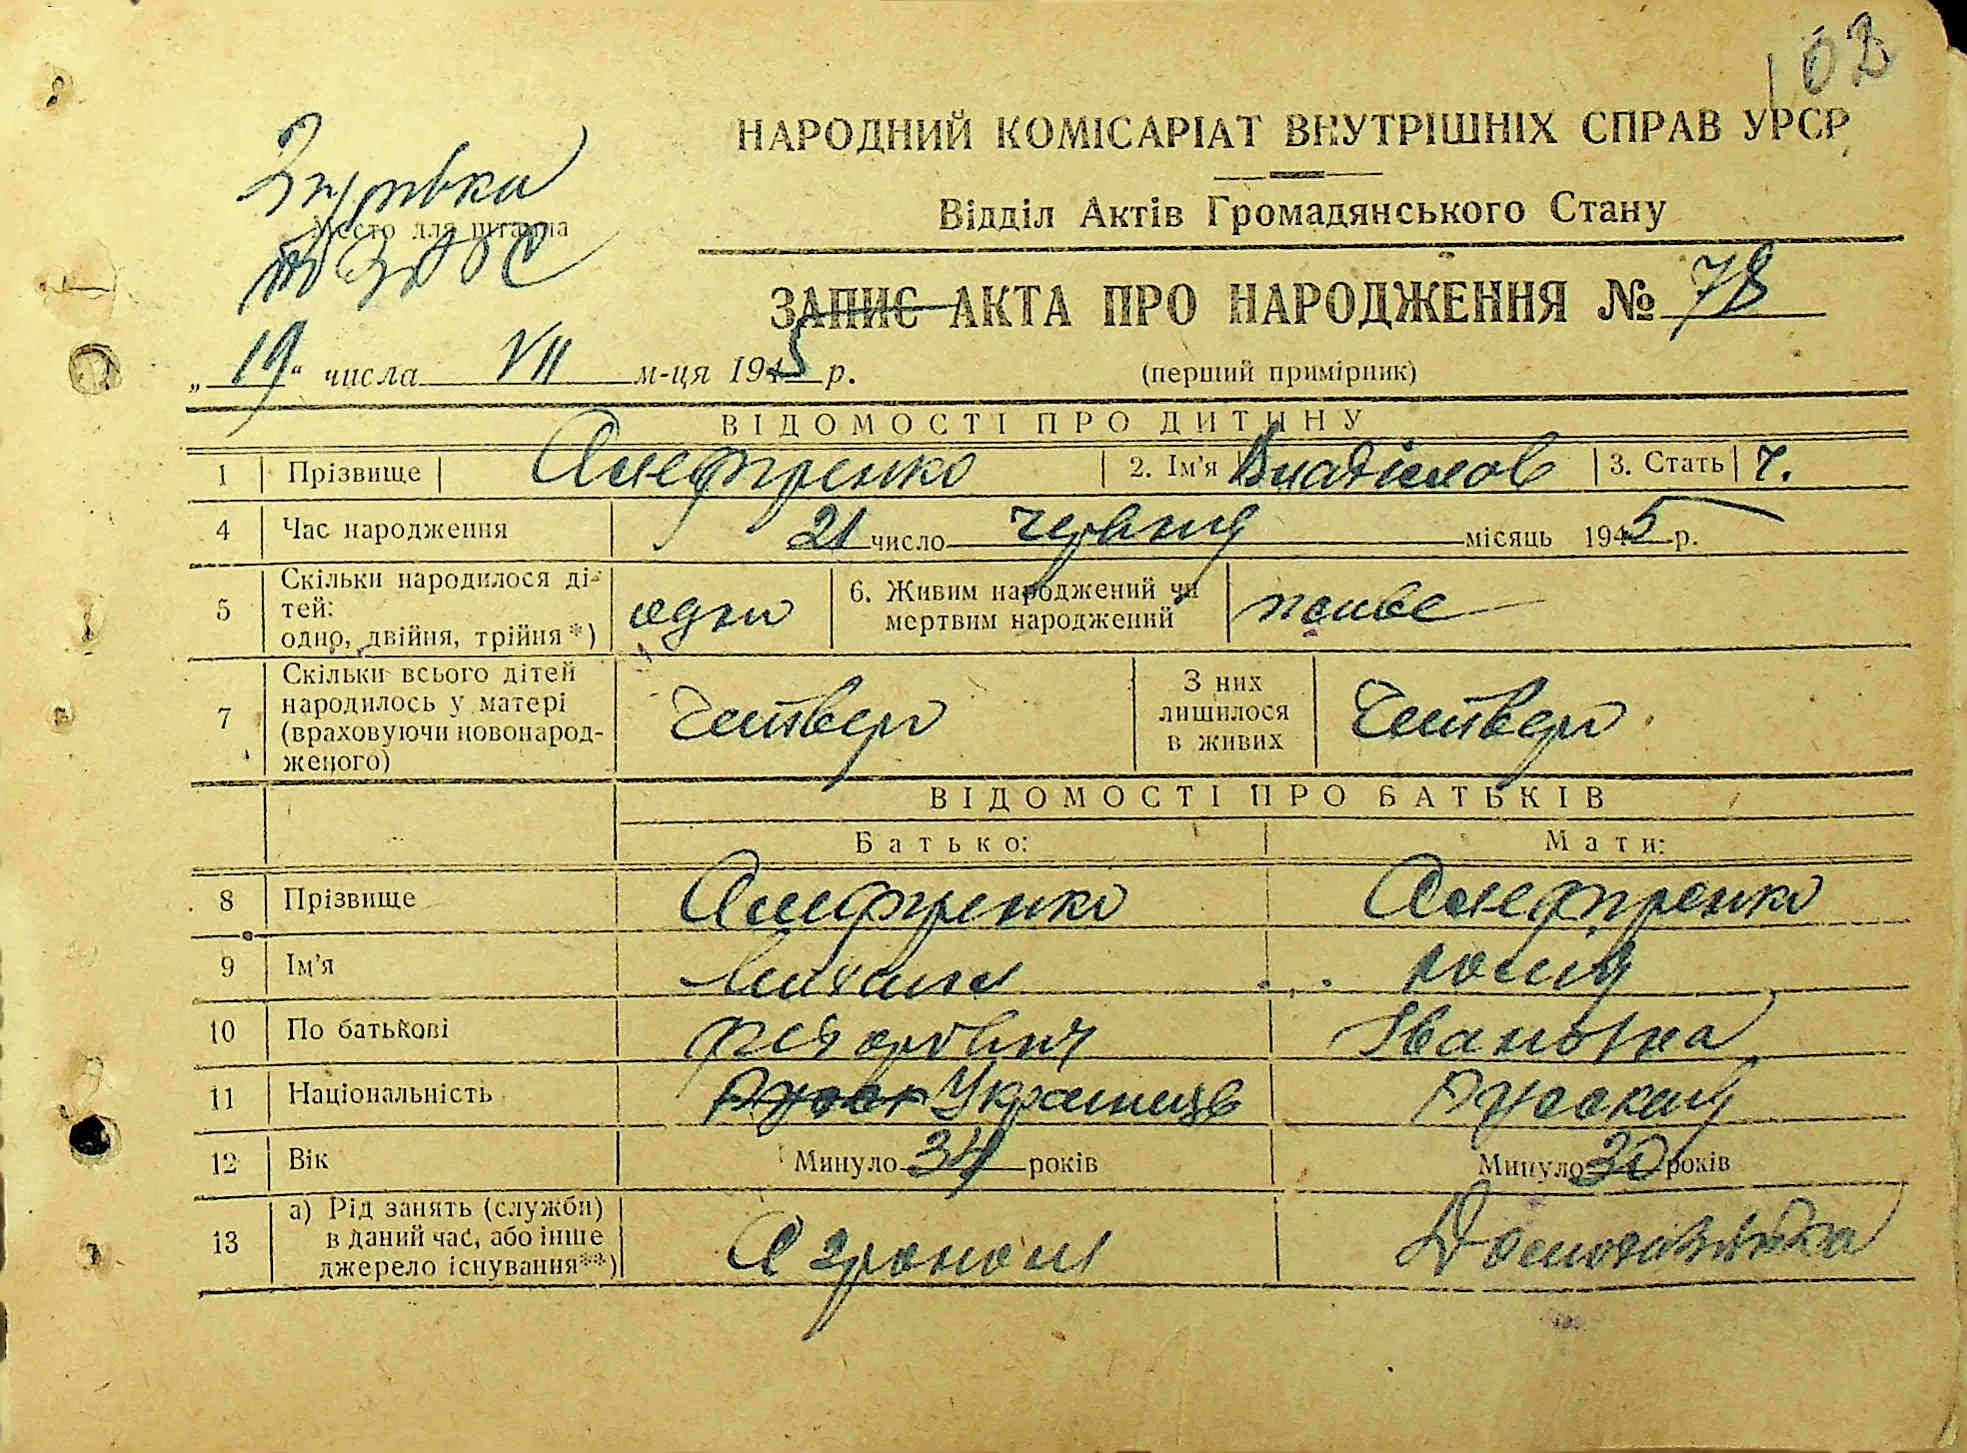 102
НАРОДНИЙ КОМІСАРІАТ ВНУТРІШНІХ СПРАВ УРСР
Згурівка
Место для штампа
ЗАГС
Відділ Актів Громадянського Стану
ЗАПИС АКТА ПРО НАРОДЖЕННЯ № 78
„ 19 “ числа VII м-ця 1945 р. (перший примірник)
ВІДОМОСТІ ПРО ДИТИНУ
1 Прізвище Алефіренко 2. Ім'я Владіслов 3. Стать ч.
4 Час народження 21 число червня місяць 1945 р.
5 Скільки народилося ді-
тей:
одно, двійня, трійня*) одно 6. Живим народжений чи
мертвим народжений живе
7 Скільки всього дітей
народилось у матері
(враховуючи новонарод-
женого) Четверо З них
лишилося
в живих Четверо
ВІДОМОСТІ ПРО БАТЬКІВ
Батько: Мати:
8 Прізвище Алефіренко Алефіренко
9 Ім'я Михаил
10 По батькові Федорович Івановна
11 Національність Українець Руськая
12 Вік Минуло 34 років Минуло 30 років
13 а) Рід занять (служби)
в даний час, або інше
джерело існування**) Агроном Домогазяйка